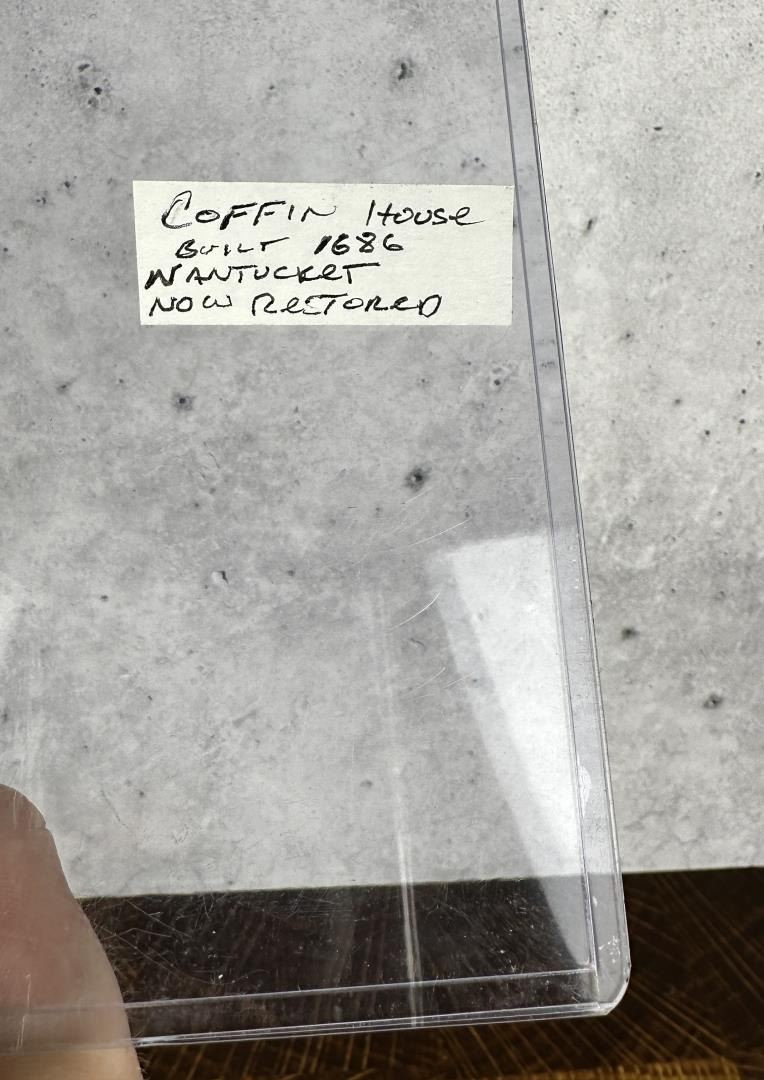 COFFIN House
BUILT 1686
NANTUCKET
NOW RESTORED